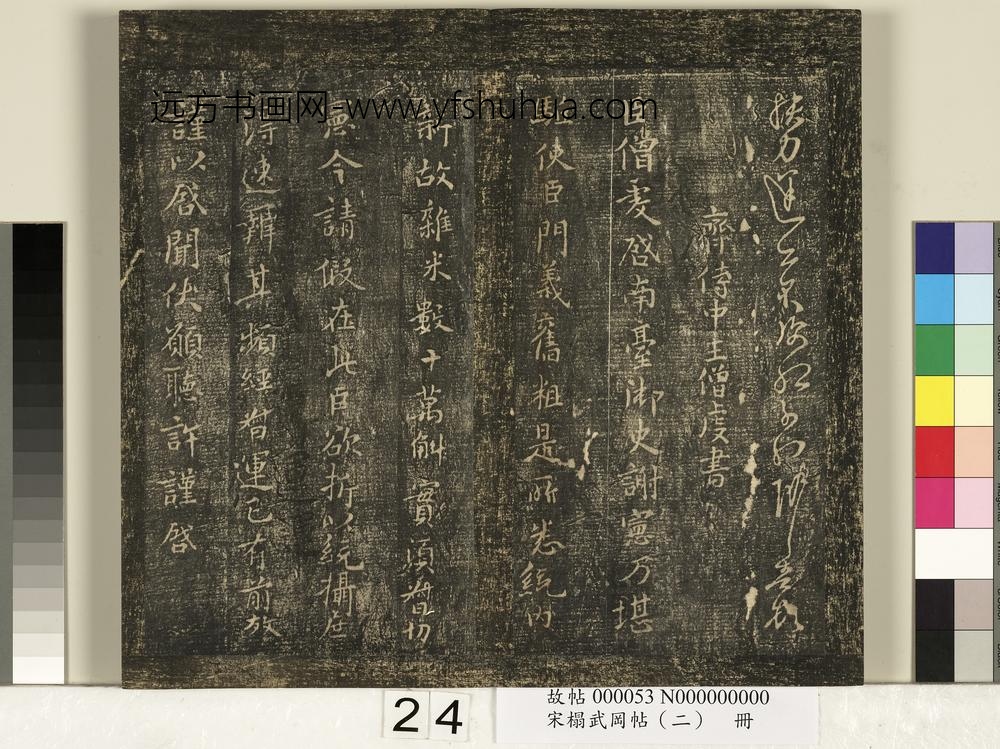 齊侍中王僧虔書
臣僧虔啓南臺御史謝憲乃堪
此使臣門義舊粗是所悉統内
新故雜米數十萬斛實須督切
應今請假在此臣欲折以統攝在
得速辦其頻經督運已有前效
謹以啓聞伏願聽許謹啓
远方书画网-www.yfshuhua.com
24
故帖 000053 N000000000
宋榻武岡帖（二） 冊